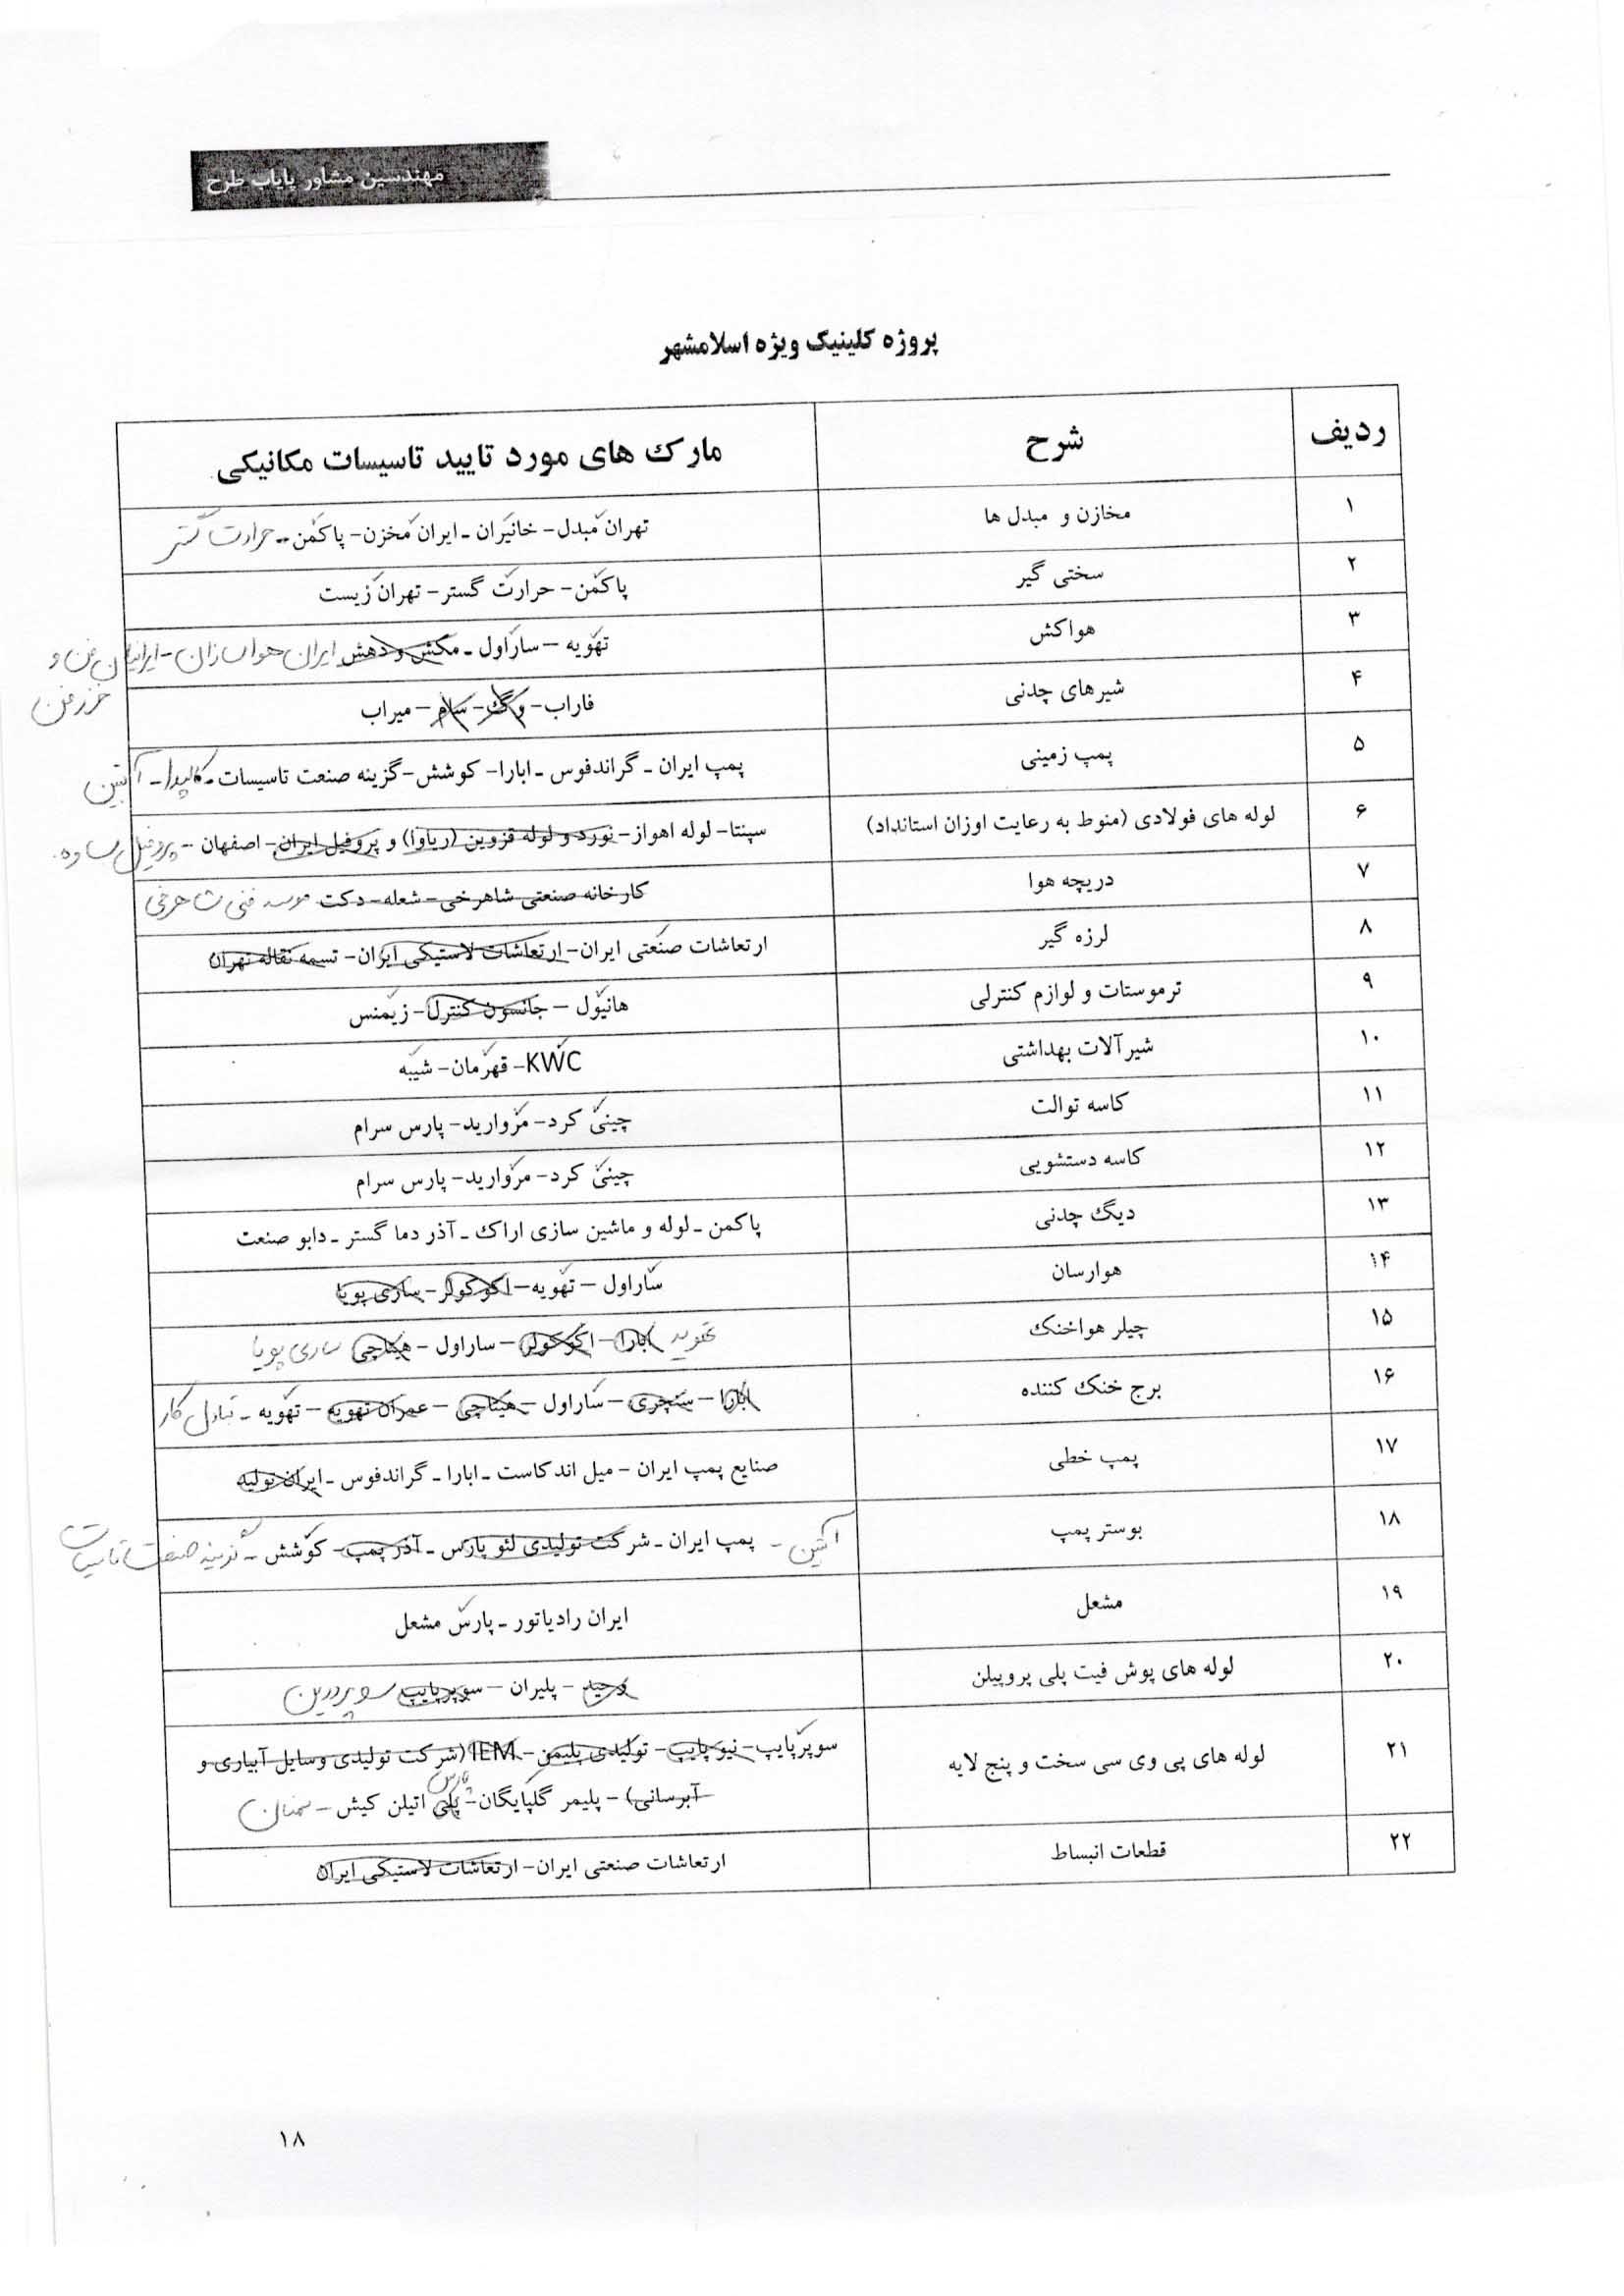 مهندسین مشاور پایاب طرح
پروژه کلینیک ویژه اسلامشهر
ردیف شرح مارک های مورد تایید تاسیسات مکانیکی
۱ مخازن و مبدل ها تهران مبدل- خانیران - ایران مخزن- پاکمن- حرارت گستر
۲ سختی گیر پاکمن- حرارت گستر- تهران زیست
۳ هواکش تهویه – ساراول - مکش و دهش ایران هواسازان - ایرانیان فن و
خزر فن
۴ شیرهای چدنی فاراب- وگ- سام – میراب
۵ پمپ زمینی پمپ ایران - گراندفوس - ابارا- کوشش- گزینه صنعت تاسیسات - کالپدا - آبتین
۶ لوله های فولادی (منوط به رعایت اوزان استانداد) سپنتا- لوله اهواز- نورد و لوله قزوین (ریاوا) و پروفیل ایران- اصفهان - پروفیل ساوه
۷ دریچه هوا کارخانه صنعتی شاهرخی- شعله- دکت موسسه فنی شاهرخی
۸ لرزه گیر ارتعاشات صنعتی ایران- ارتعاشات لاستیکی ایران- تسمه نقاله تهران
۹ ترموستات و لوازم کنترلی هانیول – جانسون کنترل- زیمنس
۱۰ شیرآلات بهداشتی KWC- قهرمان- شیبه
۱۱ کاسه توالت چینی کرد- مروارید- پارس سرام
۱۲ کاسه دستشویی چینی کرد- مروارید- پارس سرام
۱۳ دیگ چدنی پاکمن - لوله و ماشین سازی اراک - آذر دما گستر - دابو صنعت
۱۴ هوارسان ساراول – تهویه- اکوکولر- ساری پویا
۱۵ چیلر هواخنک تهویه ابارا- اکوکولر – ساراول - هیتاچی ساری پویا
۱۶ برج خنک کننده ابارا – سنچری – ساراول - هیتاچی – عمران تهویه – تهویه - تبادل کار
۱۷ پمپ خطی صنایع پمپ ایران – میل اندکاست - ابارا - گراندفوس - ایران تولیه
۱۸ بوستر پمپ آبتین - پمپ ایران - شرکت تولیدی لئو پارس - آذر پمپ- کوشش - گزینه صنعت تاسیسات
۱۹ مشعل ایران رادیاتور - پارس مشعل
۲۰ لوله های پوش فیت پلی پروپیلن وحید – پلیران – سوپرپایپ سوپردرین
۲۱ لوله های پی وی سی سخت و پنج لایه سوپرپایپ- نیو پایپ- تولیدی پلیمن- IEM (شرکت تولیدی وسایل آبیاری و
آبرسانی) – پلیمر گلپایگان- پلی پارس اتیلن کیش - سمنان
۲۲ قطعات انبساط ارتعاشات صنعتی ایران- ارتعاشات لاستیکی ایران
۱۸